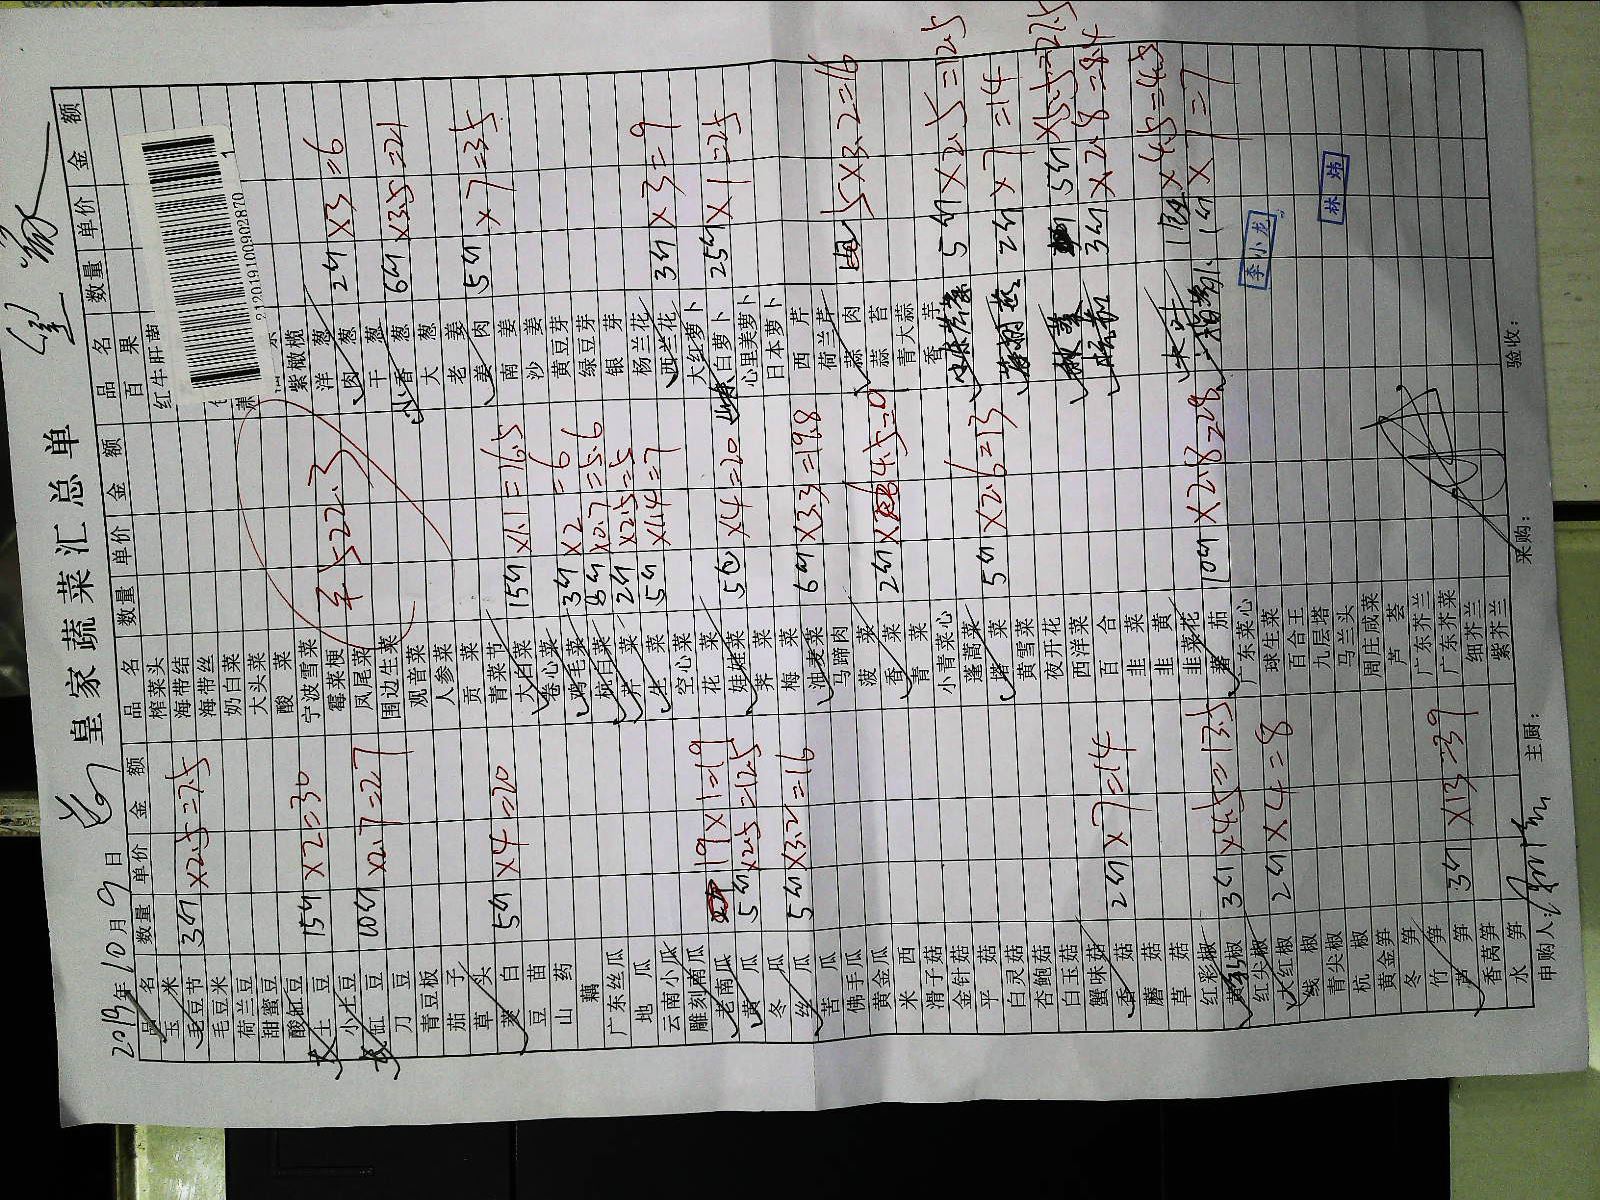 皇家蔬菜汇总单
2019年10月9日
212019100902870 1
品名 数量 单价 金额 品名 数量 单价 金额 品名 数量 单价 金额
玉米 榨菜头 百果
毛豆节 3斤×2.5=7.5 海带结 红牛肝菌
毛豆米 海带丝
荷兰豆 奶白菜
甜蜜豆 大头菜
酸豇豆 酸菜
土豆 15斤×2=30 宁波雪菜 紫橄榄
小土豆 霉菜梗 洋葱 2斤×3=6
豇豆 10斤×2.7=27 凤尾菜 肉葱
刀豆 围边生菜 干葱
青豆板 观音菜 小香葱 6斤×3.5=21
茄子 人参菜 大葱
草头 贡菜 老姜
茭白 5斤×4=20 青菜节 姜肉 5斤×7=35
豆苗 大白菜 15斤×1.1=16.5 南姜
山药 卷心菜 3斤×2=6 沙姜
藕 鸡毛菜 8斤×0.7=5.6 黄豆芽
广东丝瓜 杭白菜 2斤×2.5=5 绿豆芽
地瓜 芹菜 5斤×1.4=7 银芽
云南小瓜 生菜 杨兰花
雕刻南瓜 空心菜 西兰花 3斤×3=9
老南瓜 19×1=19 花菜 大红萝卜
黄瓜 5斤×2.5=12.5 娃娃菜 5包×4=20 白萝卜 25斤×1=25
冬瓜 荠菜 心里美萝卜
丝瓜 5斤×3.2=16 梅菜 日本萝卜
苦瓜 油麦菜 6斤×3.3=19.8 西芹
佛手瓜 马蹄肉 荷兰芹
黄金瓜 菠菜 蒜肉 5×3.2=16
米西 香菜 2斤×4.5=9 蒜苔
滑子菇 青菜 青大蒜
金针菇 小青菜心 香芋
平菇 蓬蒿菜 5斤×2.5=12.5
白灵菇 塔菜 5斤×2.6=13 2斤×7=14
杏鲍菇 黄雪菜
白玉菇 夜开花 5斤×5.5=27.5
蟹味菇 西洋菜 3斤×2.8=8.4
香菇 2斤×7=14 百合
蘑菇 韭菜 ×4.5=4.5
草菇 韭黄 1斤×7=7
红彩椒 韭菜花
黄彩椒 3斤×4.5=13.5 蕃茄 10斤×2.8=28
红尖椒 广东菜心
大红椒 2斤×4=8 球生菜
线椒 百合王
青尖椒 九层塔
杭椒 马兰头
黄金笋 周庄咸菜
冬笋 芦荟
竹笋 广东芥兰
芦笋 3斤×13=39 广东芥菜
香莴笋 细芥兰
水笋 紫芥兰
522.3
李小龙
林炜
申购人： 主厨： 采购： 验收：